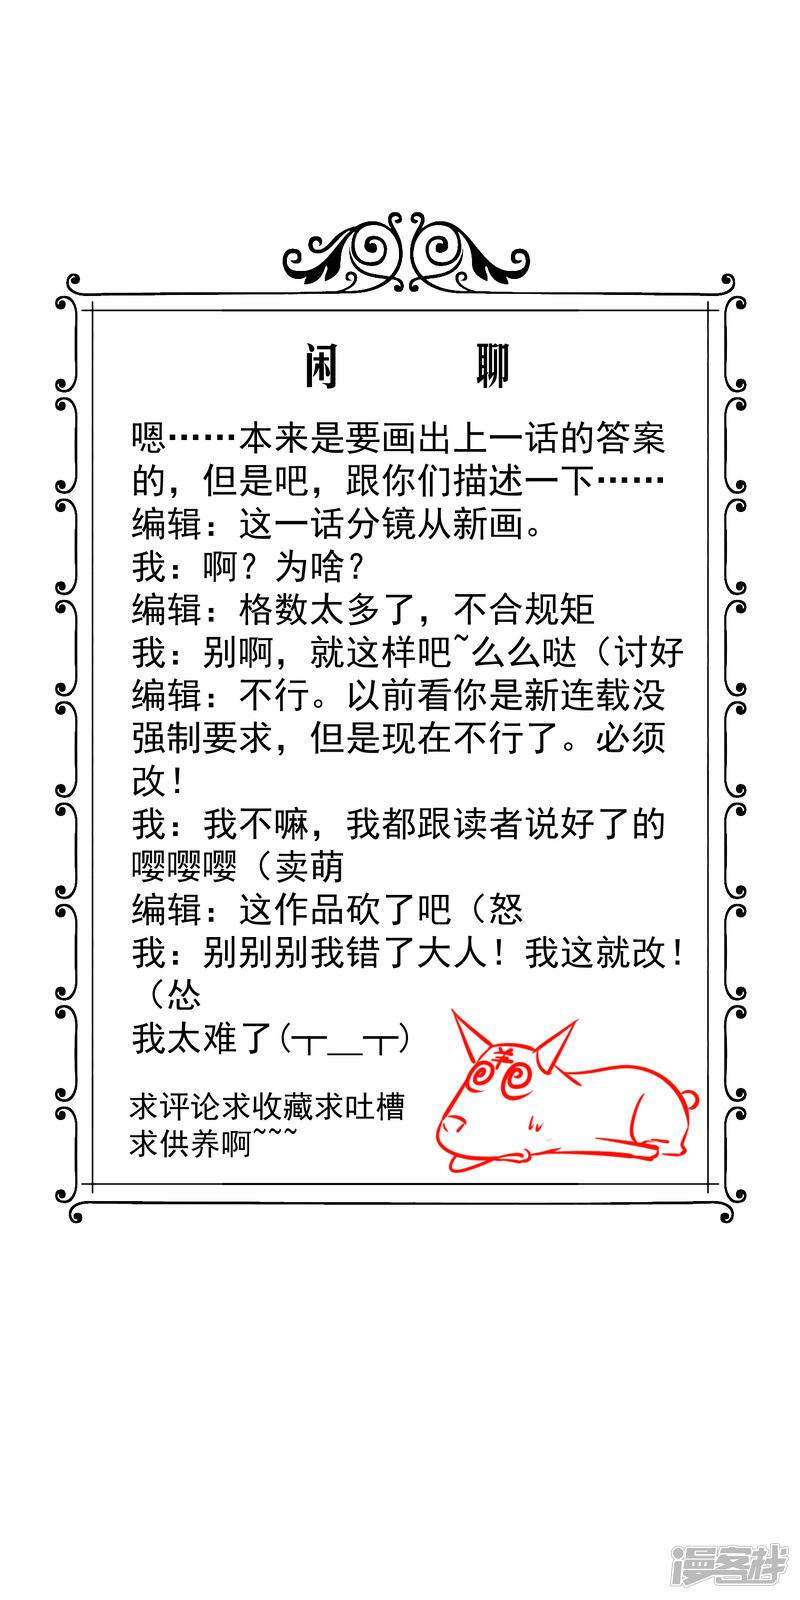 闲 聊
嗯……本来是要画出上一话的答案
的，但是吧，跟你们描述一下……
编辑：这一话分镜从新画。
我：啊？为啥？
编辑：格数太多了，不合规矩
我：别啊，就这样吧~么么哒（讨好
编辑：不行。以前看你是新连载没
强制要求，但是现在不行了。必须
改！
我：我不嘛，我都跟读者说好了的
嘤嘤嘤（卖萌
编辑：这作品砍了吧（怒
我：别别别我错了大人！我这就改！
（怂
我太难了(┬＿┬)
求评论求收藏求吐槽
求供养啊~~~
漫客栈